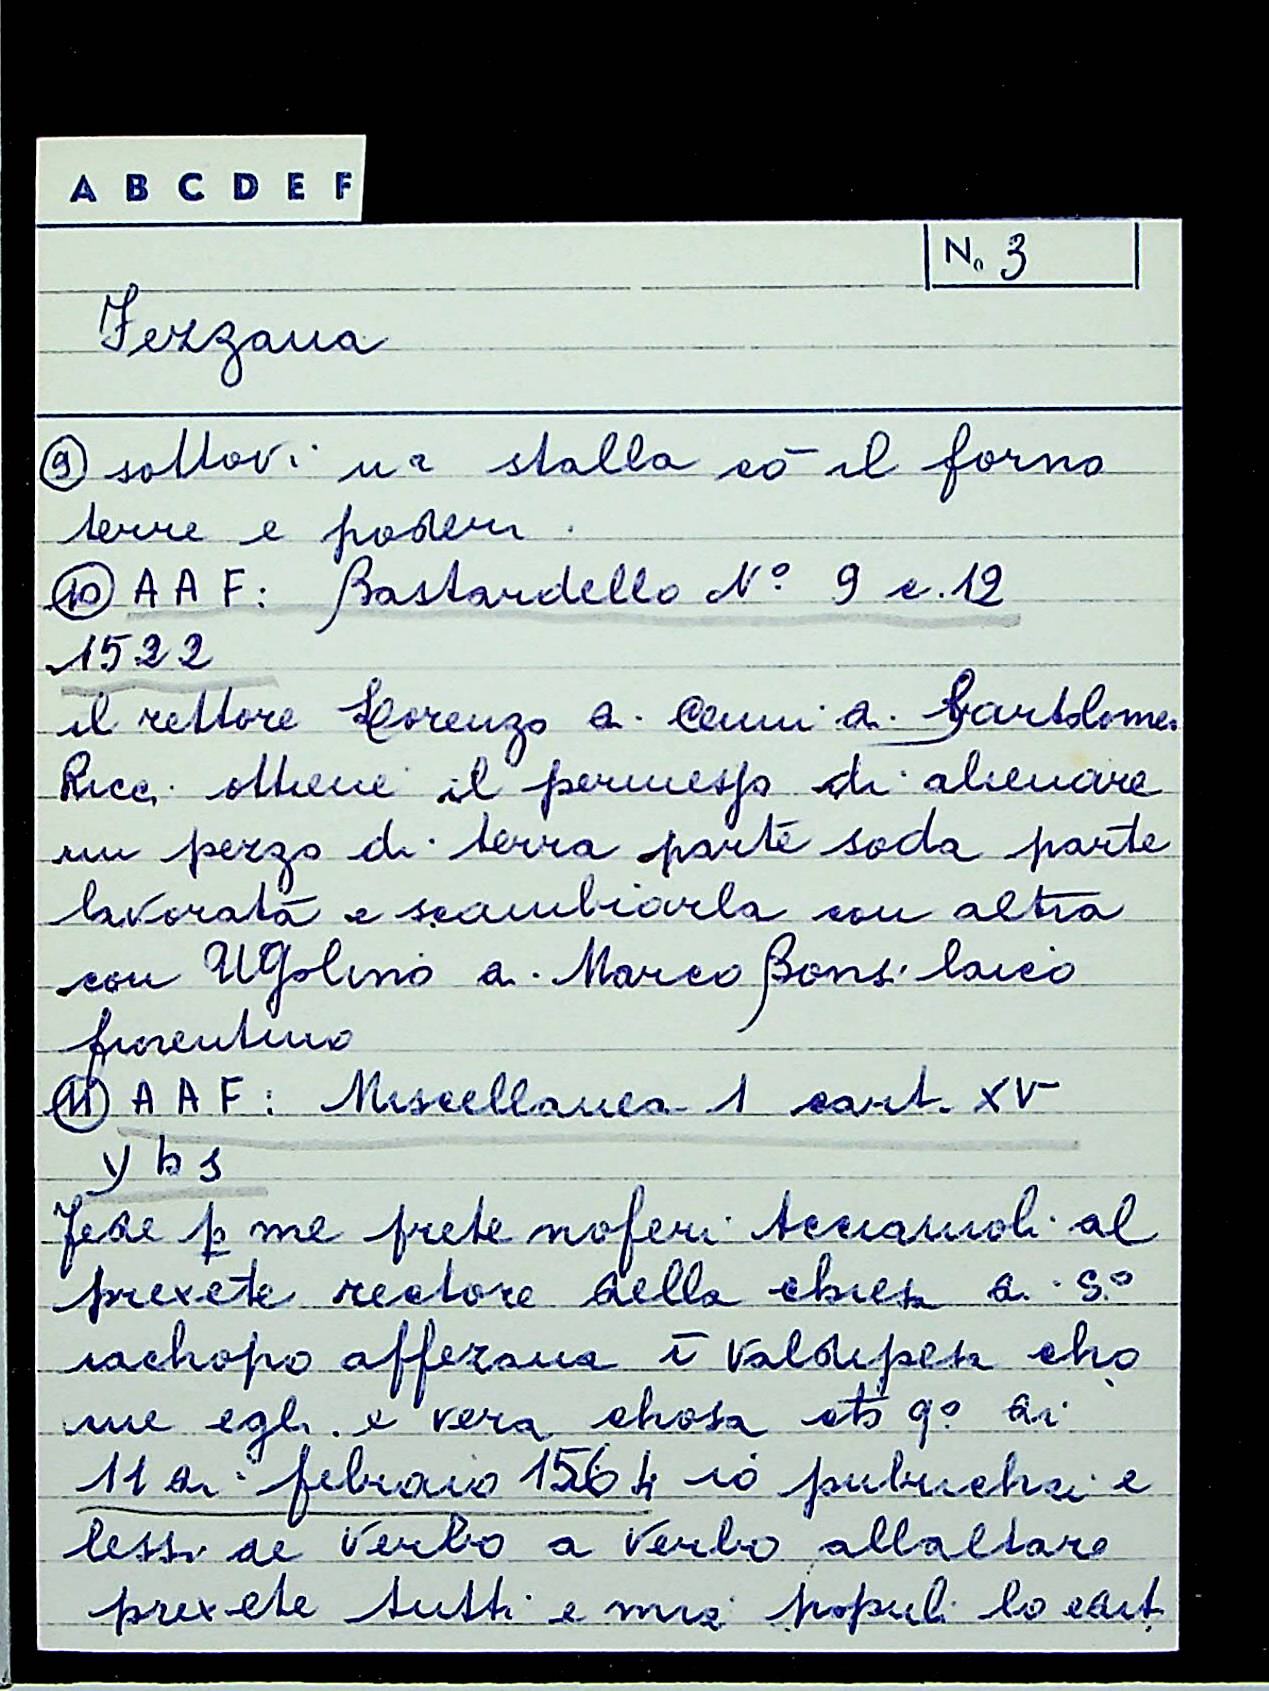 A B C D E F
No 3
Fezzana
9 sottovi na stalla cō il forno
terre e poderi.
10 A A F: Bastardello N° 9 c. 12
1522
il rettore Lorenzo di Cenni di Bartolomeo
Ricci ottiene il permesso di alienare
un pezzo di terra parte soda parte
lavorata e scambiarla con altra
con Ugolino di Marco Bonsi laico
fiorentino
11 A A F: Miscellanea 1 cart. XV
y b s
Fede p me prete noferi acciaiuoli al
prexete rectore della chiesa di S°
iachopo affezana ī valdipesa cho
me egli e vera chosa q° di
11 di febraio 1564 io pubrichai e
lessi de verbo a verbo allaltare
prexete tutti e miei populi lo cart